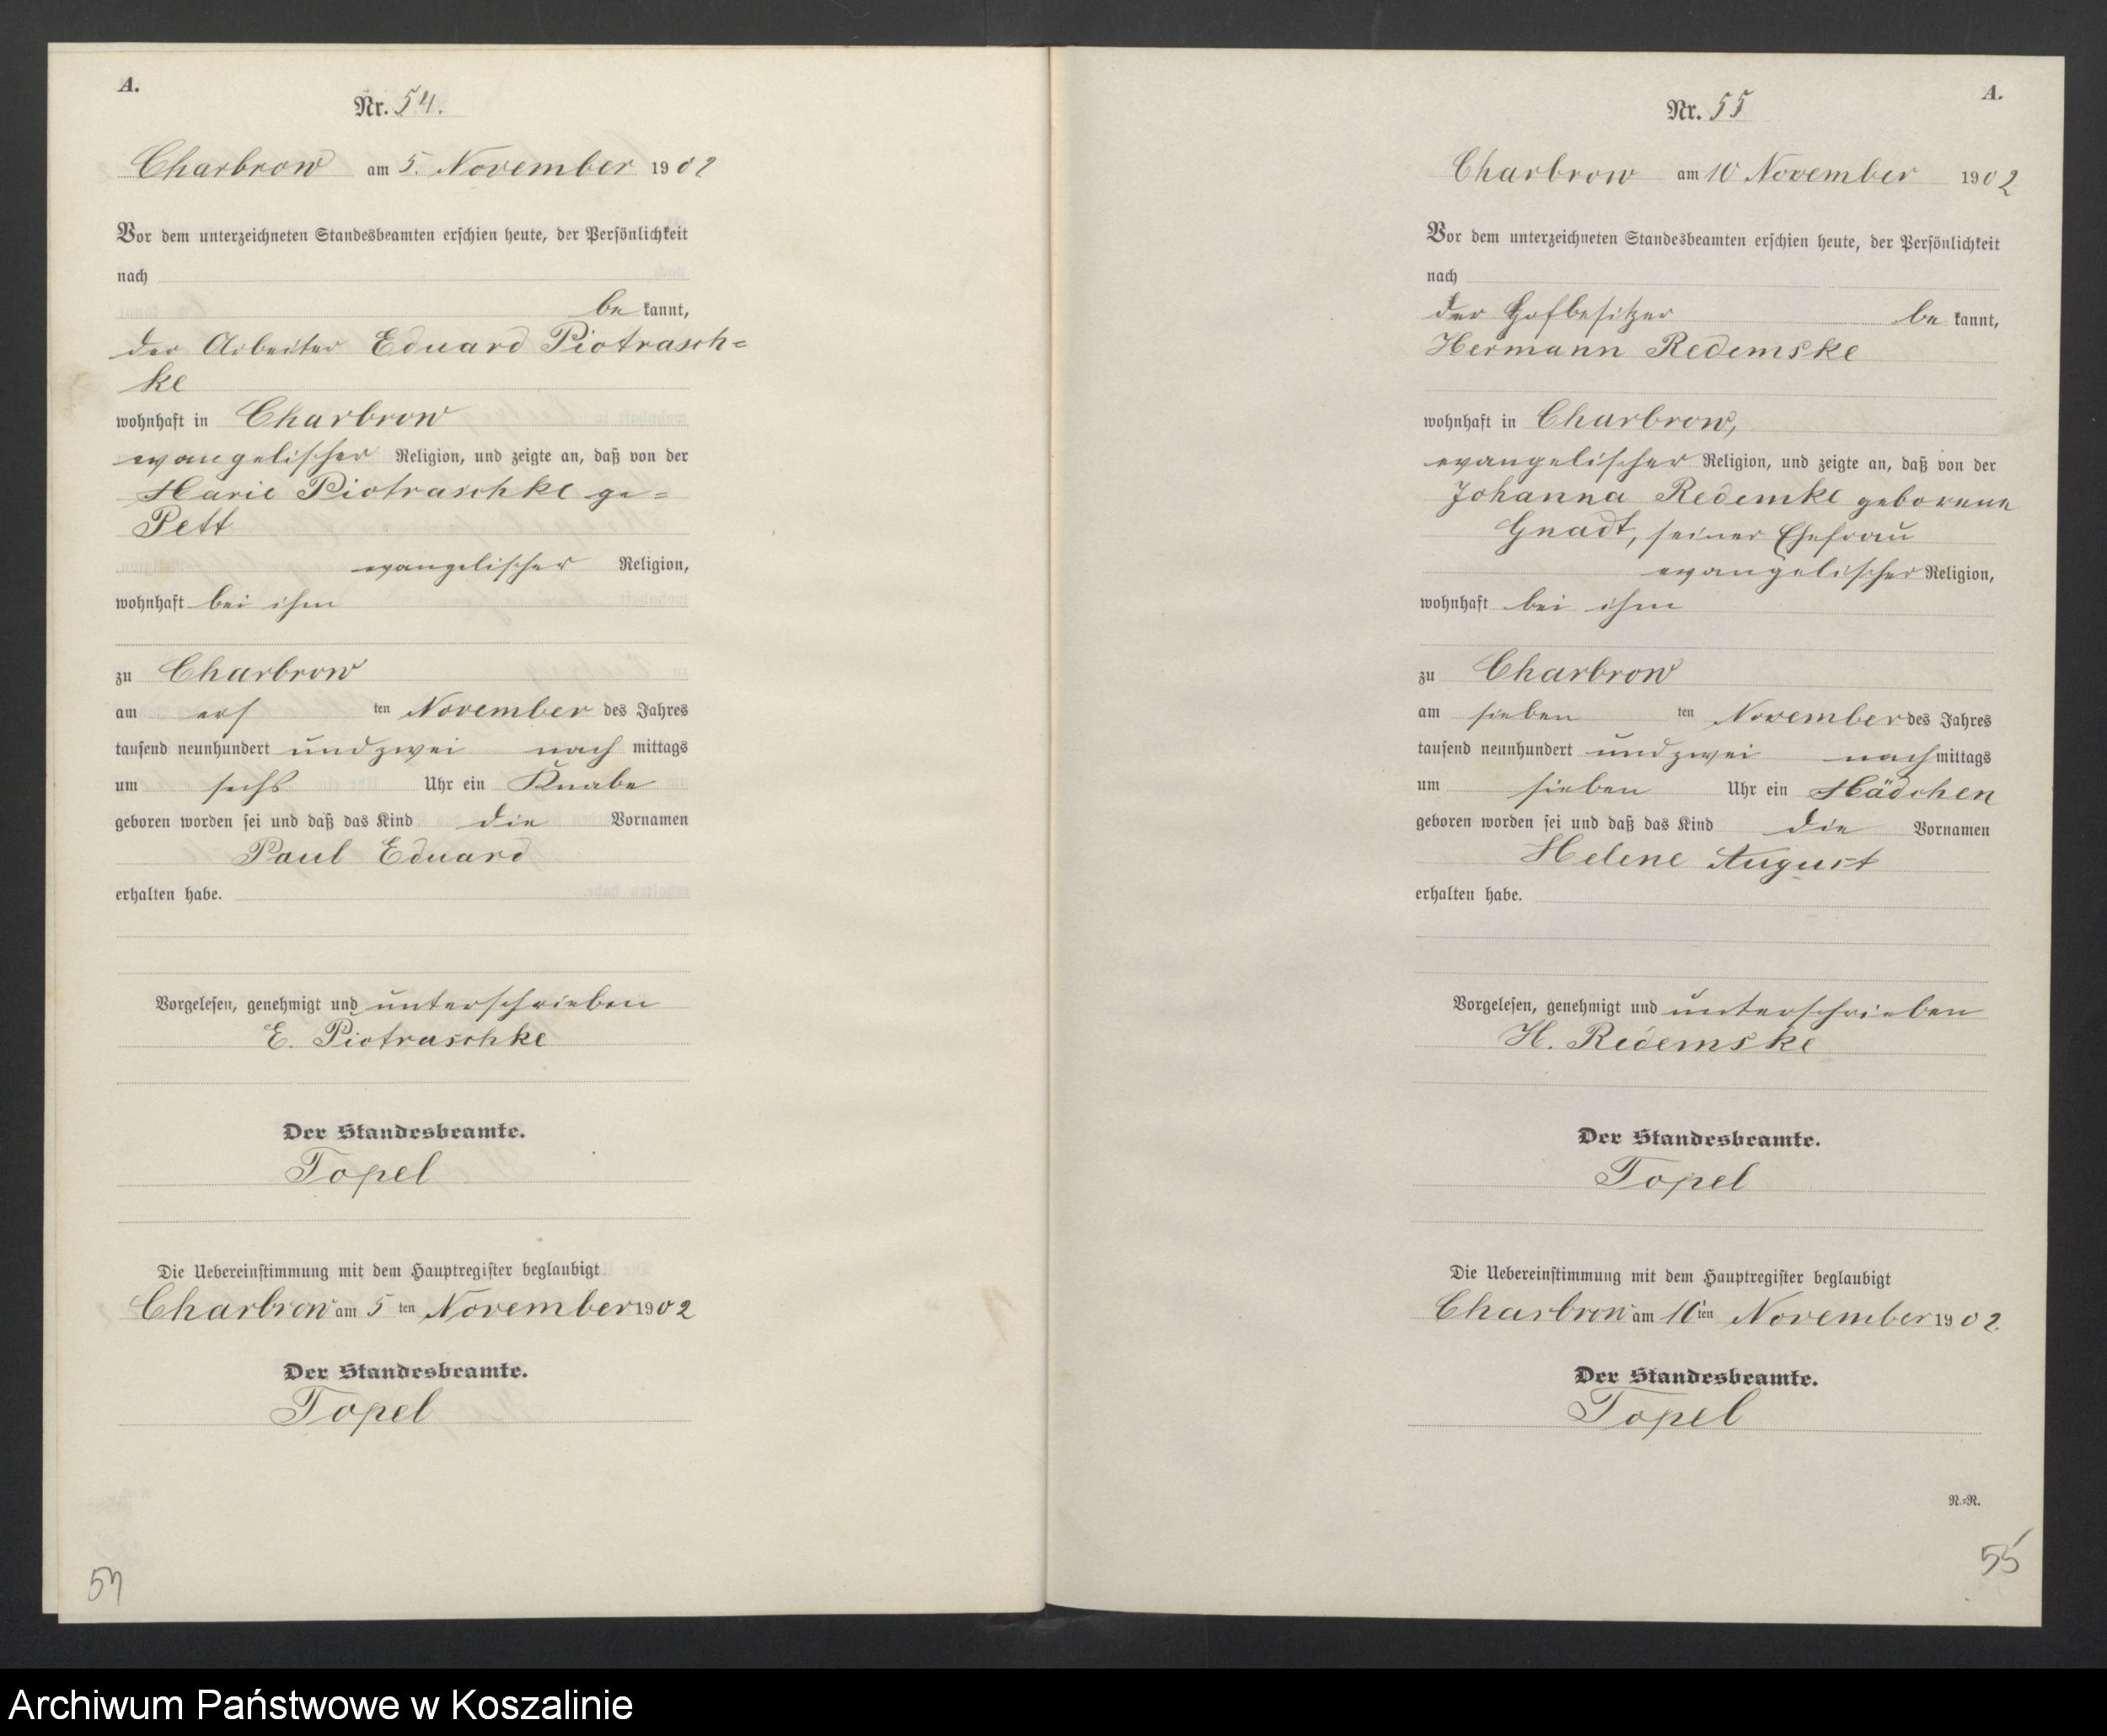 A.
Nr. 54.
Charbrow am 5. November 1902
Vor dem unterzeichneten Standesbeamten erschien heute, der Persönlichkeit
nach
be kannt,
der Arbeiter Eduard Piotrasch=
ke
wohnhaft in Charbrow
evangelischer Religion, und zeigte an, daß von der
Marie Piotraschke ge=
Pett
evangelischer Religion,
wohnhaft bei ihm
zu Charbrow
am ers ten November des Jahres
tausend neunhundert und zwei nach mittags
um sechs Uhr ein Knabe
geboren worden sei und daß das Kind die Vornamen
Paul Eduard
erhalten habe.
Vorgelesen, genehmigt und unterschrieben
E. Piotraschke
Der Standesbeamte.
Topel
Die Uebereinstimmung mit dem Hauptregister beglaubigt
Charbrow am 5 ten November 1902
Der Standesbeamte.
Topel
54
A.
Nr. 55
Charbrow am 10 November 1902
Vor dem unterzeichneten Standesbeamten erschien heute, der Persönlichkeit
nach
der Hofbesitzer be kannt,
Hermann Redemske
wohnhaft in Charbrow,
evangelischer Religion, und zeigte an, daß von der
Johanna Redemke geborene
Gnadt, seiner Ehefrau
evangelischer Religion,
wohnhaft bei ihm
zu Charbrow
am sieben ten November des Jahres
tausend neunhundert und zwei nach mittags
um sieben Uhr ein Mädchen
geboren worden sei und daß das Kind die Vornamen
Helene August
erhalten habe.
Vorgelesen, genehmigt und unterschrieben
H. Redemske
Der Standesbeamte.
Topel
Die Uebereinstimmung mit dem Hauptregister beglaubigt
Charbrow am 10 ten November 1902.
Der Standesbeamte.
Topel
N.=N.
55
Archiwum Państwowe w Koszalinie